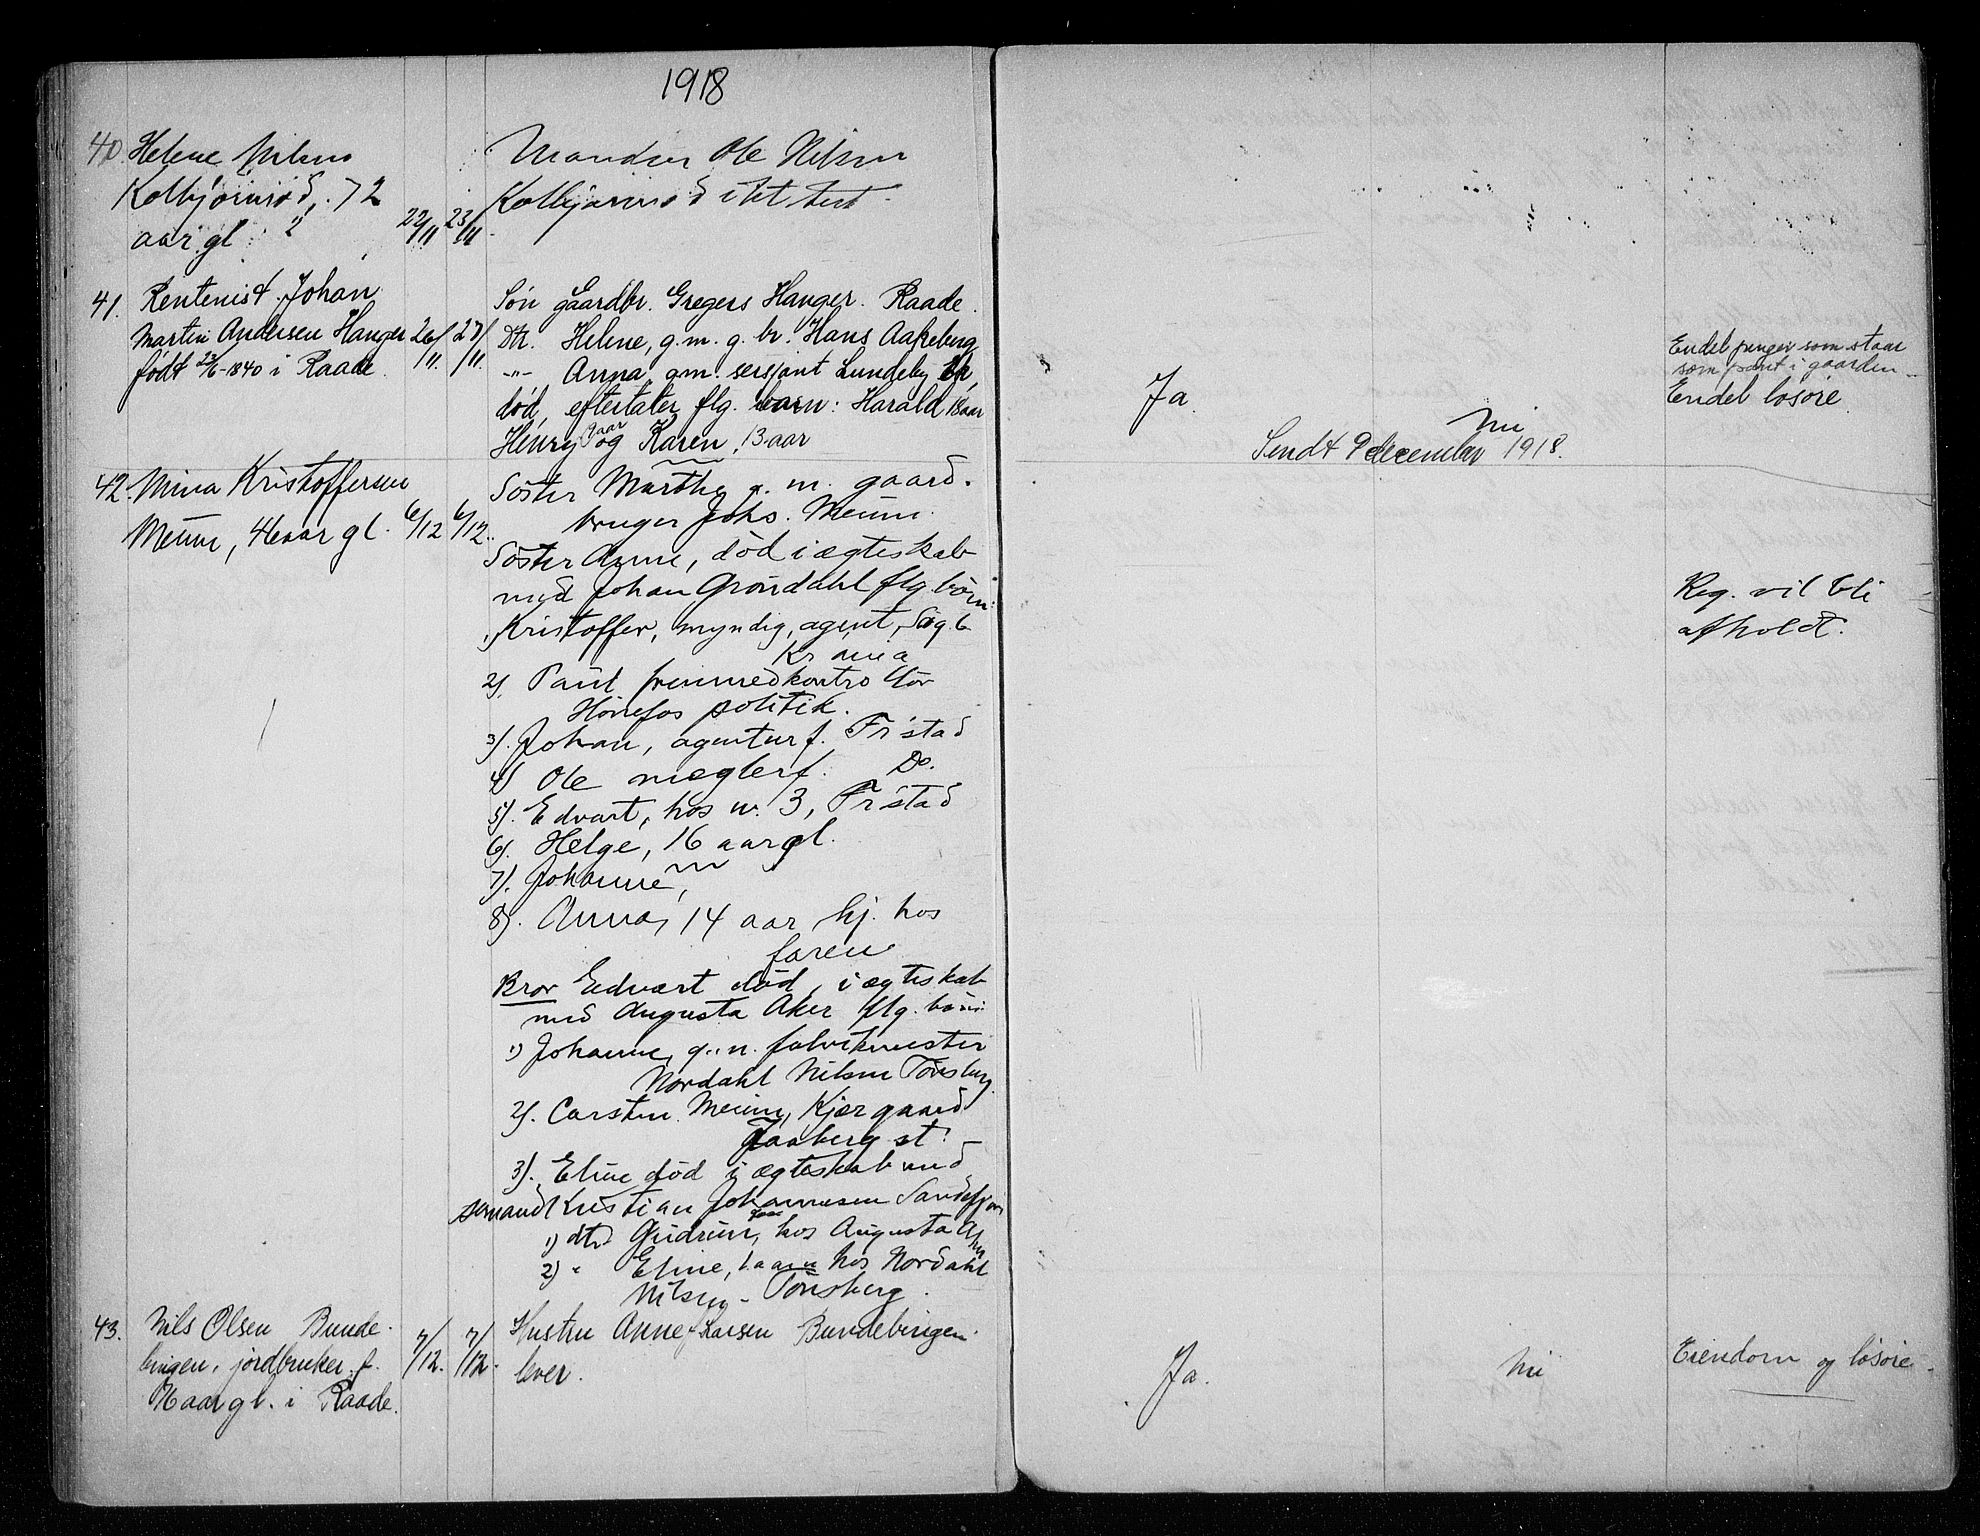 1918
40. Helene Nilsen
Kolbjørnsrød, 72
aar gl.
22/11 23/11
Manden Ole Nilsen
Kolbjørnsrød ikke test.
41. Rentenist Johan
Martin Andersen Hauger
født 23/6-1840 i Raade.
26/11. 27/11.
Søn gaardbr. Gregers Hauger. Raade.
Dtr. Helene, g.m. g.br. Hans Aakeberg
-"- Anna, gm. sersjant Lundeby
død, efterlater flg. barn: Harald 18 aar
Henry 9 aar og Karen, 13 aar
Ja
nei
Sendt 9 december 1918.
Endel penger som staar
som pant i gaarden
Endel løsøre
42. Mina Kristoffersen
Meum, 46 aar gl.
6/12 6/12.
Søster Marthe g. m. gaard-
bruger Johs. Meum.
Søster Anne, død i ægteskab
med Johan Grøndahl flg. børn:
1) Kristoffer, myndig, agent,
Kr.ania
2). Paul fremmedkontrollør
Hønefos politik.
3). Johan, agenturf. Fr'stad
4) Ole mæglerf. Do.
5). Edvart, hos nr. 3, Fr'stad
6). Helge, 16 aar gl.
7). Johanne,
8). Anna, 14 aar, hj. hos
faren
Bror Edvart død i ægteskab
med Augusta Aker flg. børn:
1) Johanne, g.m. fabrikmester
Nordahl Nilsen Tønsberg
2). Carsten Meum, Kjærgaard
Jaaberg st.
3). Eline død i ægteskab med
sømand Kristian Johannesen Sandefjord
1) dtr. Gudrun, hos Augusta Aker
2) " Eline, 1 aar hos Nordahl
Nilsen - Tønsberg.
Reg. vil bli
afholdt.
43. Nils Olsen Bunde-
bingen, jordbruker, f.
aar gl. i Raade.
7/12. 7/12.
Hustru Anne Larsen Bundebingen
lever.
Ja.
nei
Eiendom og løsøre.